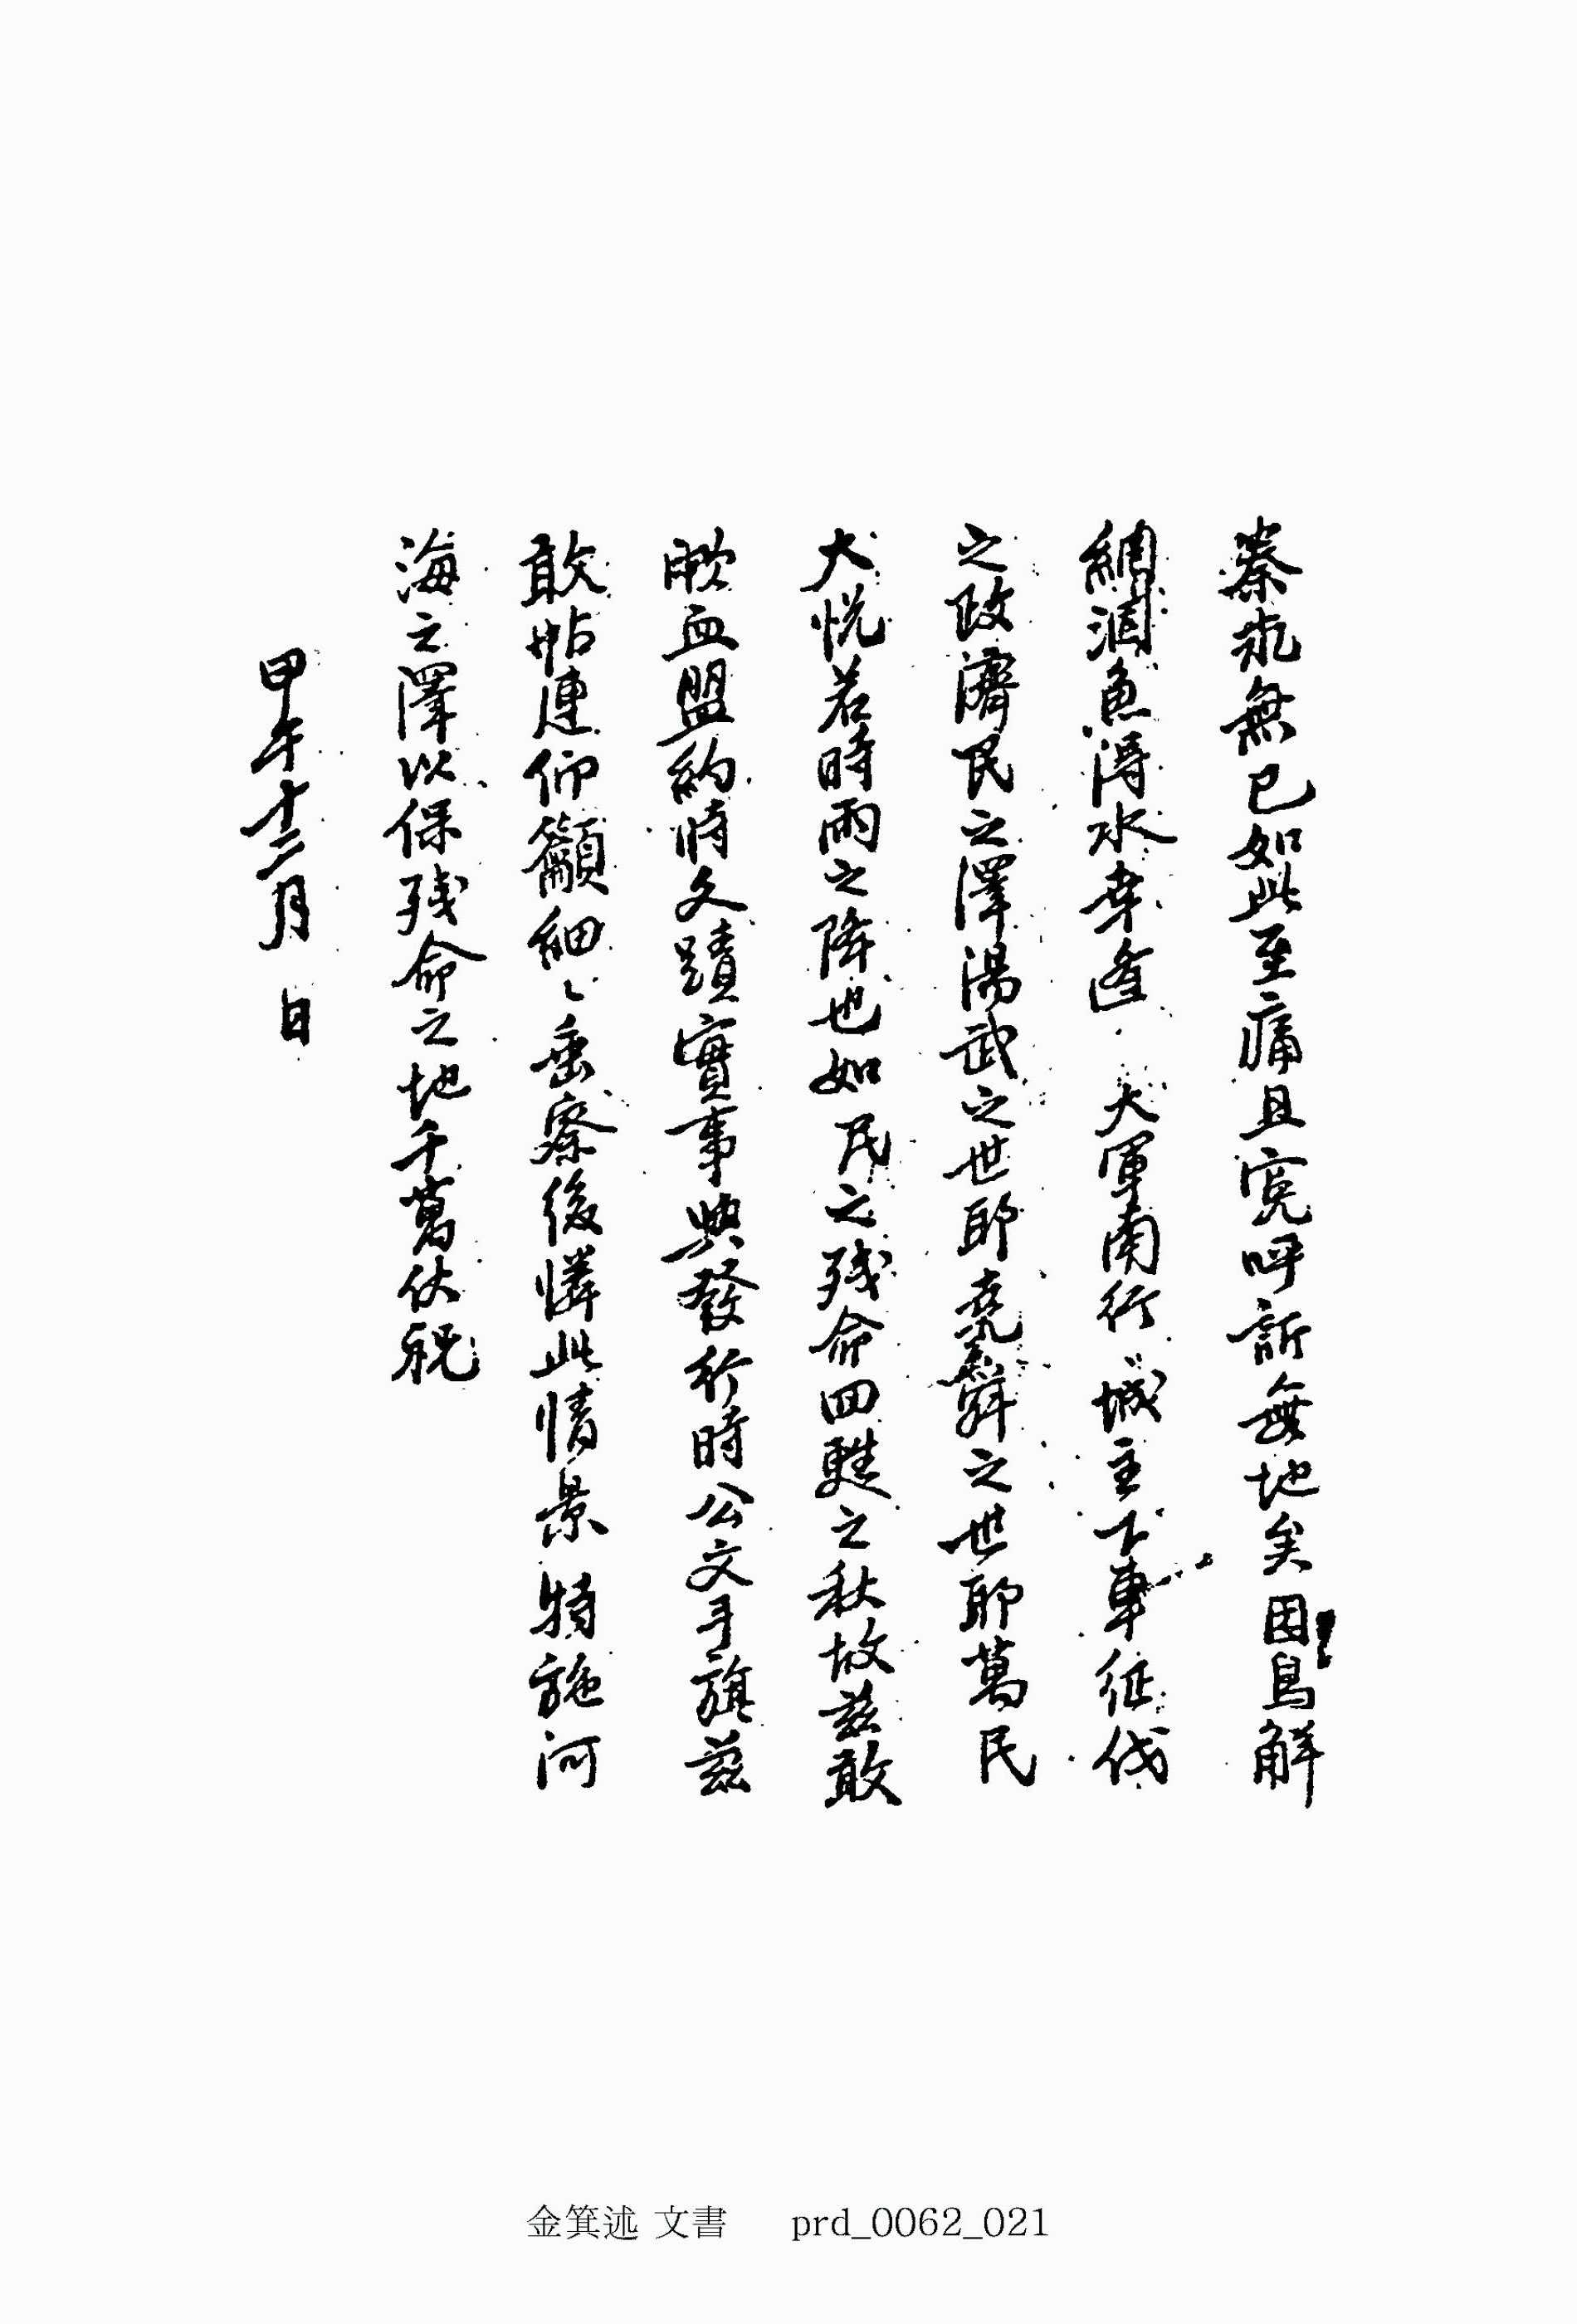 蔡甩無已如此至痛且寃呼訴無地矣因鳥解
網涸魚得水幸逢 大軍南行 城主下車征伐
之政濟民之澤湯武之世耶堯舜之世耶萬民
大悅若時雨之降也如民之残命回甦之秋故玆敢
歃血盟約時文蹟實事與發行時公文手旗玆
敢帖連仰籲細〻垂察後憐此情景 特施河
海之澤以保残命之地千萬伏祝
甲午十二月 日
金箕述 文書 prd_0062_021